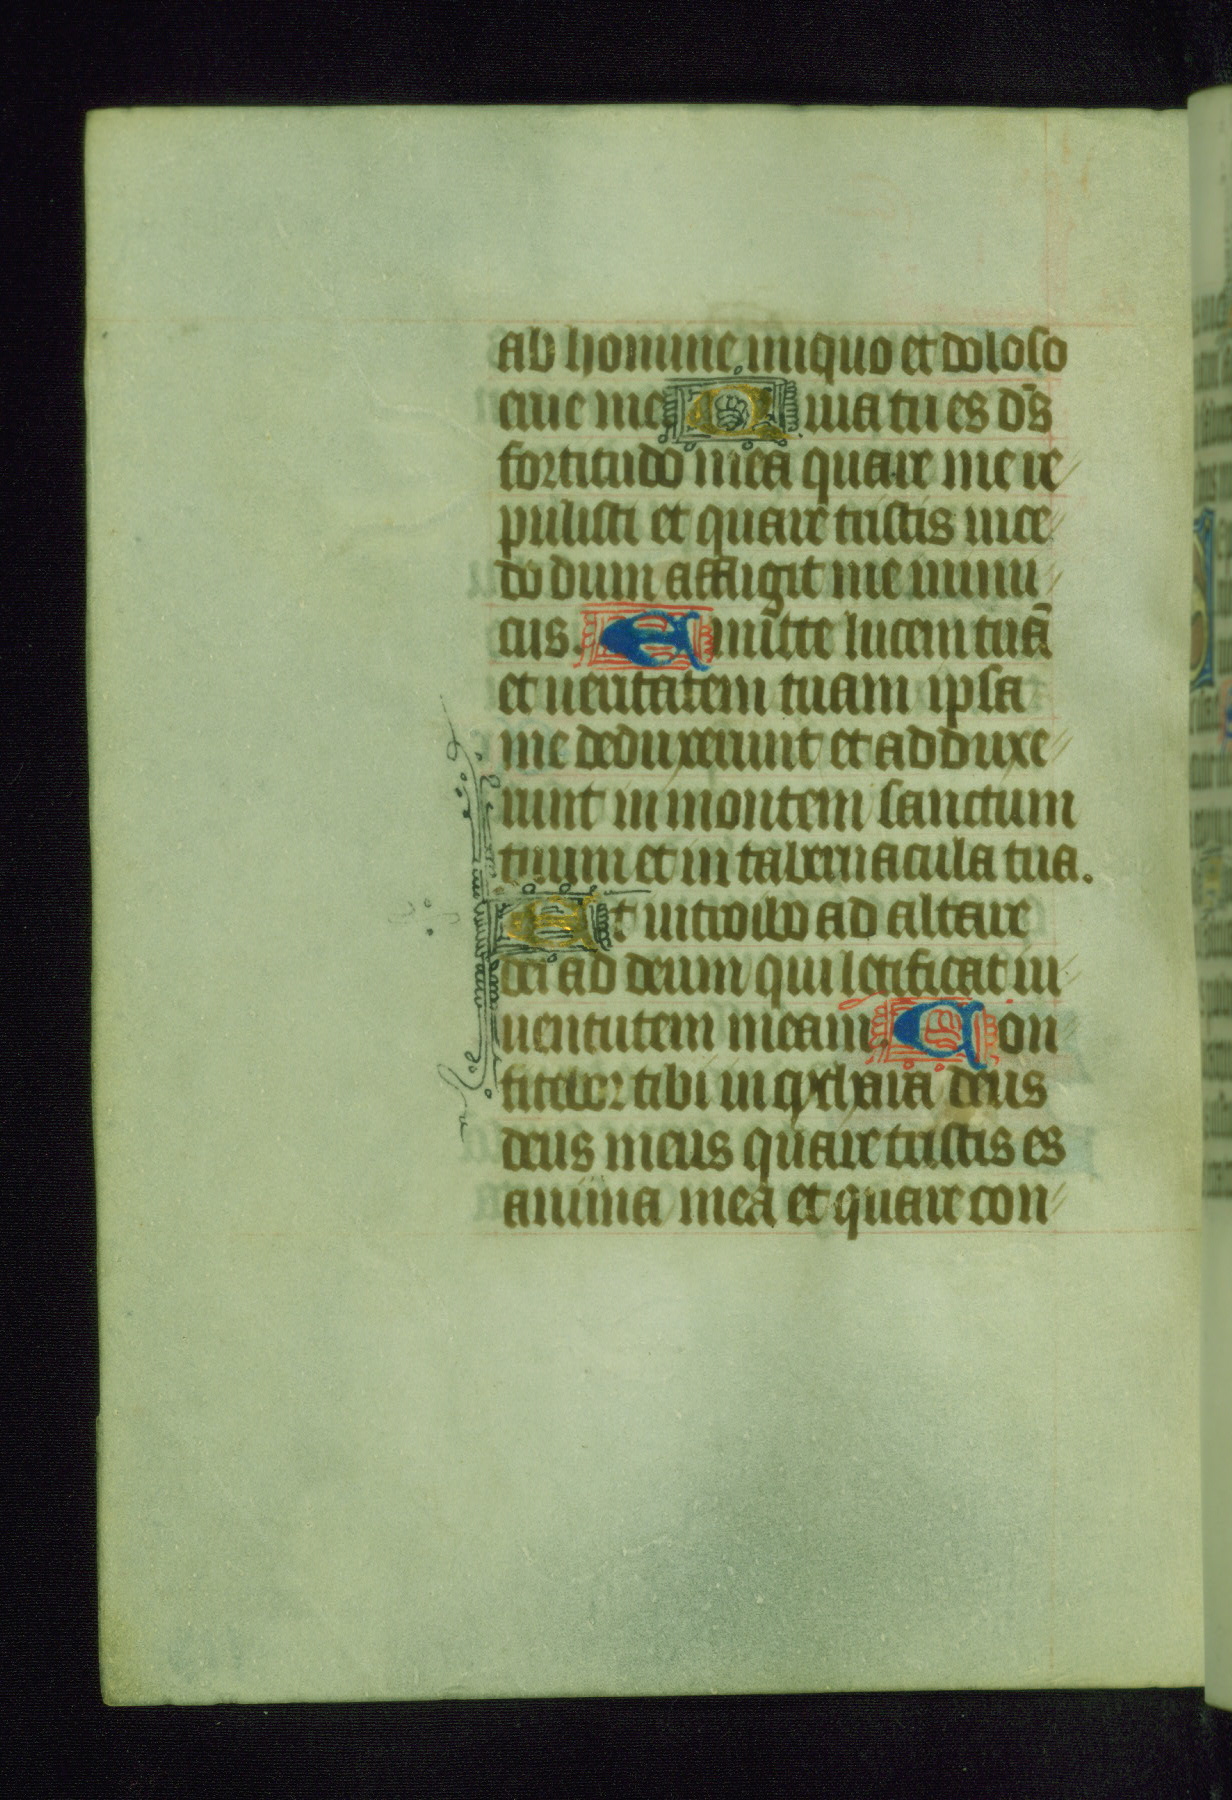 ab homine iniquo et doloso
erue me Quia tu es d̄s
fortitudo mea quare me re
pulisti et quare tristis ince
do dum affligit me inimi
cus. Emitte lucem tuā
et ueritatem tuam ipsa
me deduxerunt et adduxe
runt in montem sanctum
tuum et in tabernacula tua.
Et introibo ad altare
dei ad deum qui letificat iu
uentutem meam. Con
fitebor tibi in cythara deus
deus meus quare tristis es
anima mea et quare con